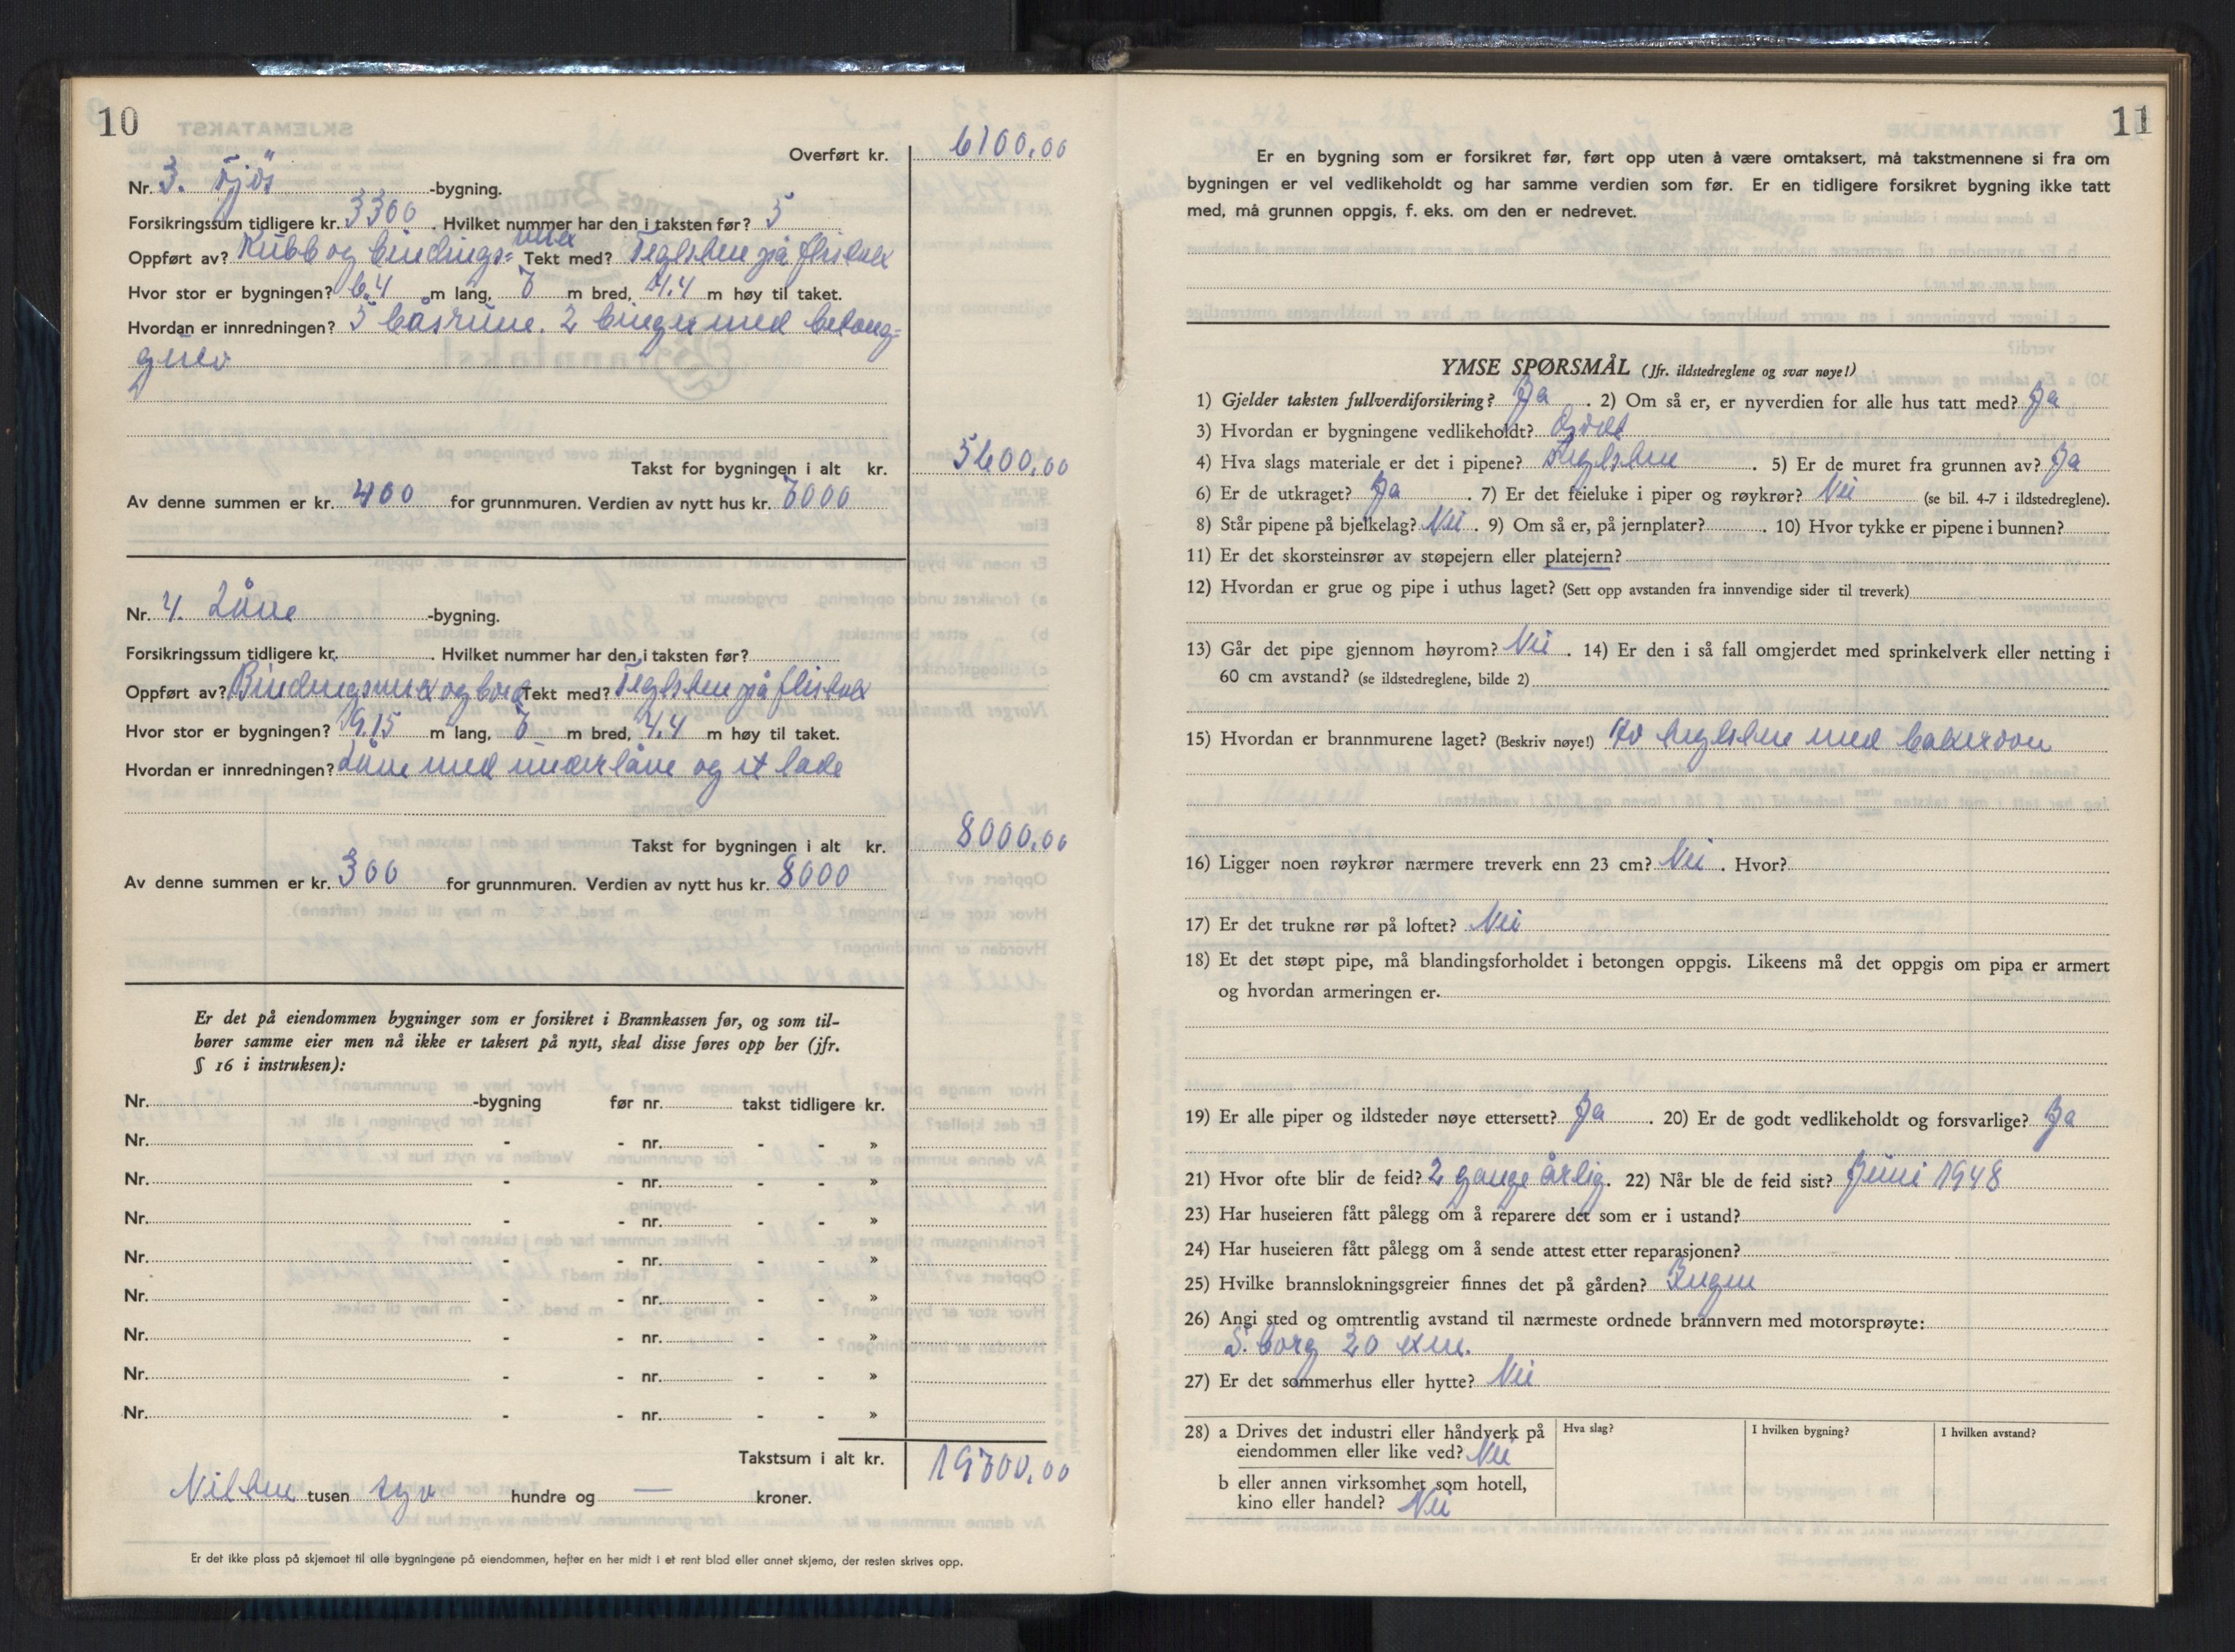 10
Overført kr. 6100,00
Nr. 3. Fjös -bygning.
Forsikringssum tidligere kr. 3300 . Hvilket nummer har den i taksten før? 5
Oppført av? Kubb og bindings= verk Tekt med? Teglsten på flistak
Hvor stor er bygningen? 6.4 m lang, 7 m bred, 4.4 m høy til taket.
Hvordan er innredningen? 5 båsrum. 2 binger med betong=
gulv
Takst for bygningen i alt kr. 5600,00
Av denne summen er kr. 400 for grunnmuren. Verdien av nytt hus kr. 7000
Nr. 4. Låve -bygning.
Forsikringssum tidligere kr. . Hvilket nummer har den i taksten før?
Oppført av? Bindingsverk og bord Tekt med? Teglsten på flistak
Hvor stor er bygningen? 9.15 m lang, 7 m bred, 4,4 m høy til taket.
Hvordan er innredningen? Låve med underlåve og et lade
Takst for bygningen i alt kr. 8000,00
Av denne summen er kr. 300 for grunnmuren. Verdien av nytt hus kr. 8000
Er det på eiendommen bygninger som er forsikret i Brannkassen før, og som til-
hører samme eier men nå ikke er taksert på nytt, skal disse føres opp her (jfr.
§ 16 i instruksen):
Nr. -bygning før nr. takst tidligere kr.
Nr. - - nr. - - »
Nr. - - nr. - - »
Nr. - - nr. - - »
Nr. - - nr. - - »
Nr. - - nr. - - »
Nr. - - nr. - - »
Nr. - - nr. - - »
Nr. - - nr. - - »
Takstsum i alt kr. 19700,00
Nitten tusen syv hundre og — kroner.
Er det ikke plass på skjemaet til alle bygningene på eiendommen, hefter en her midt i et rent blad eller annet skjema, der resten skrives opp.
11
Er en bygning som er forsikret før, ført opp uten å være omtaksert, må takstmennene si fra om
bygningen er vel vedlikeholdt og har samme verdien som før. Er en tidligere forsikret bygning ikke tatt
med, må grunnen oppgis, f. eks. om den er nedrevet.
YMSE SPØRSMÅL (Jfr. ildstedreglene og svar nøye!)
1) Gjelder taksten fullverdiforsikring? Ja . 2) Om så er, er nyverdien for alle hus tatt med? Ja
3) Hvordan er bygningene vedlikeholdt? Godt
4) Hva slags materiale er det i pipene? Teglsten . 5) Er de muret fra grunnen av? Ja
6) Er de utkraget? Ja . 7) Er det feieluke i piper og røykrør? Nei (se bil. 4-7 i ildstedreglene).
8) Står pipene på bjelkelag? Nei . 9) Om så er, på jernplater? . 10) Hvor tykke er pipene i bunnen?
11) Er det skorsteinsrør av støpejern eller platejern?
12) Hvordan er grue og pipe i uthus laget? (Sett opp avstanden fra innvendige sider til treverk)
13) Går det pipe gjennom høyrom? Nei . 14) Er den i så fall omgjerdet med sprinkelverk eller netting i
60 cm avstand? (se ildstedreglene, bilde 2)
15) Hvordan er brannmurene laget? (Beskriv nøye!) Av teglsten med bakerovn
16) Ligger noen røykrør nærmere treverk enn 23 cm? Nei . Hvor?
17) Er det trukne rør på loftet? Nei
18) Et det støpt pipe, må blandingsforholdet i betongen oppgis. Likeens må det oppgis om pipa er armert
og hvordan armeringen er.
19) Er alle piper og ildsteder nøye ettersett? Ja . 20) Er de godt vedlikeholdt og forsvarlige? Ja
21) Hvor ofte blir de feid? 2 gange årlig. 22) Når ble de feid sist? Juni 1948
23) Har huseieren fått pålegg om å reparere det som er i ustand?
24) Har huseieren fått pålegg om å sende attest etter reparasjonen?
25) Hvilke brannslokningsgreier finnes det på gården? Ingen
26) Angi sted og omtrentlig avstand til nærmeste ordnede brannvern med motorsprøyte:
S.borg 20 km.
27) Er det sommerhus eller hytte? Nei
28) a Drives det industri eller håndverk på
eiendommen eller like ved? Nei
Hva slag?
I hvilken bygning?
I hvilken avstand?
b eller annen virksomhet som hotell,
kino eller handel? Nei